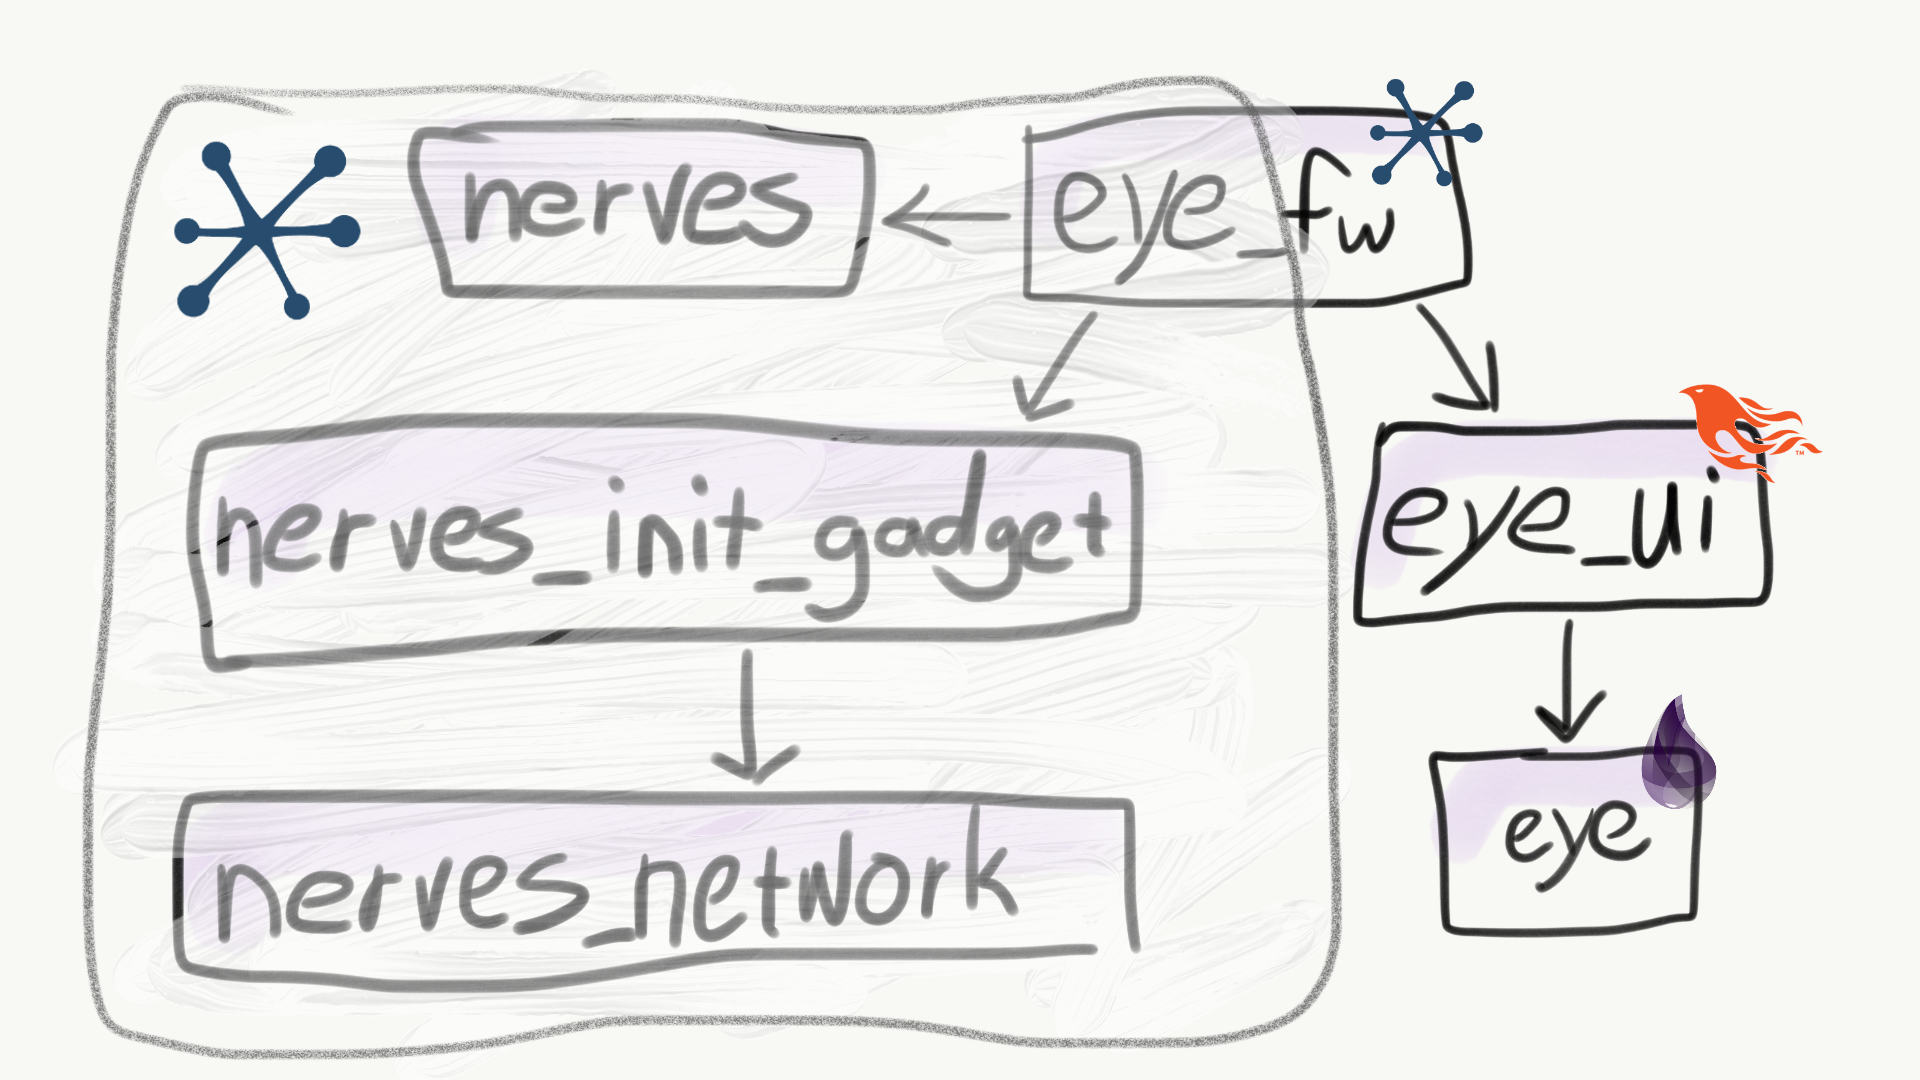 nerves
eye_fw
nerves_init_gadget
eye_ui
TM
nerves_network
eye